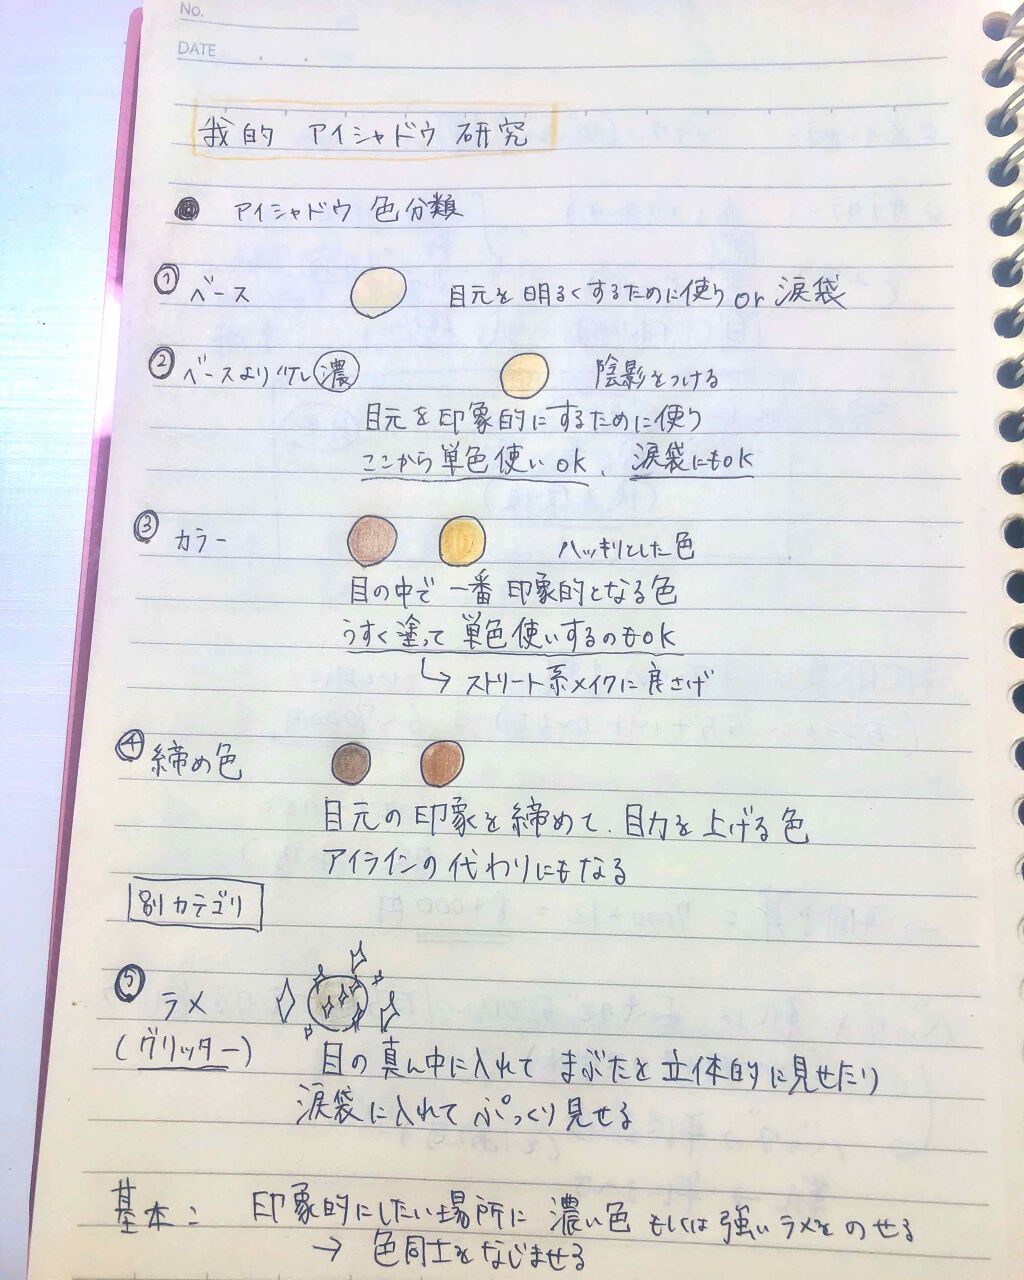 No.
DATE
我的 アイシャドウ 研究
アイシャドウ 色分類
① ベース 目元を明るくするために使り or 涙袋
② ベースより少し濃 陰影をつける
目元を印象的にするために使り
ここから単色使いOK、涙袋にもOK
③ カラー ハッキリとした色
目の中で一番印象的となる色
うすく塗って単色使いするのもOK
→ ストリート系メイクに良さげ
④ 締め色
目元の印象を締めて、目力を上げる色
アイラインの代わりにもなる
別カテゴリ
⑤ ラメ
(グリッター) 目の真ん中に入れて まぶたを立体的に見せたり
涙袋に入れて ぷっくり見せる
基本: 印象的にしたい場所に 濃い色 もしくは強いラメをのせる
→ 色同士をなじませる